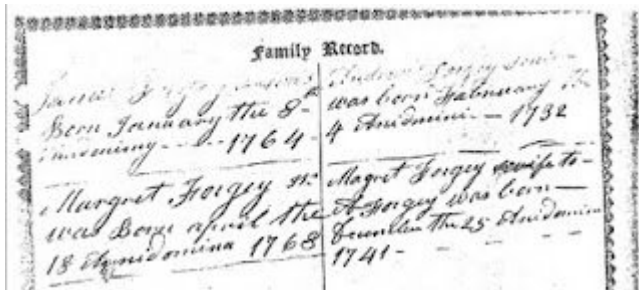 Family Record.
James Forgey
Born January the 8th
1764
Margret Forgey
was Born april the
18 Annidomina 1768
Andrew Forgey
was born Febnuary the
4 Anidmini — 1732
Magret Forgey wife to
A Forgey was born —
the 25 Anidomini
1741 -